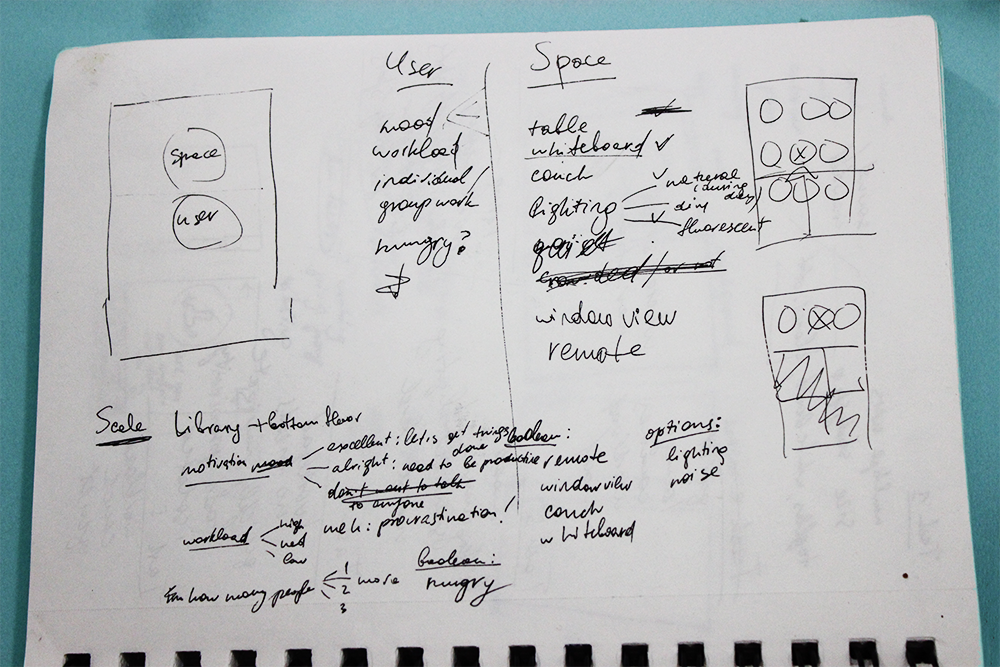 space
user
User
mood
workload
individual
group work
hungry?
Space
table
whiteboard ✓
couch
lighting
✓ natural (during day)
dim
✓ fluorescent
quiet
crowded / or not
window view
remote
Scale Library + bottom floor
motivation mood
excellent: let's get things done
alright: need to be productive
don't want to talk
to anyone
meh: procrastination!
workload
high
med
low
For how many people
1
2 more
3
boolean:
hungry
boolean:
remote
window view
couch
whiteboard
options:
lighting
noise